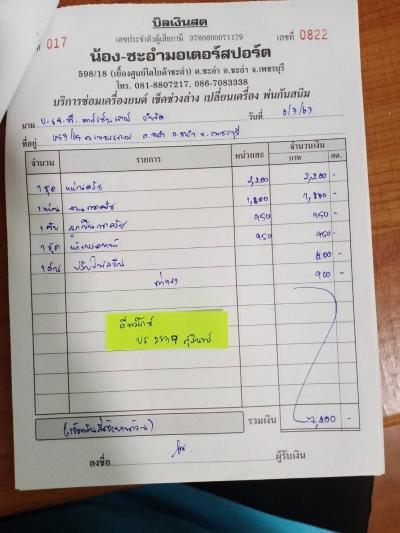 บิลเงินสด
เลขประจำตัวผู้เสียภาษี 3760600071179
017
เลขที่ 0822
น้อง-ชะอำมอเตอร์สปอร์ต
598/18 (เยื้องศูนย์โตโยต้าชะอำ) ต.ชะอำ อ.ชะอำ จ.เพชรบุรี
โทร. 081-8807217, 086-7083338
บริการซ่อมเครื่องยนต์ เช็คช่วงล่าง เปลี่ยนเครื่อง พ่นกันสนิม
นาม จำกัด วันที่ 6/7/67
ที่อยู่ ต.ชะอำ อ.ชะอำ จ.เพชรบุรี
จำนวน รายการ หน่วยละ จำนวนเงิน
บาท สต.
1 ชุด หวีครัช 2,200 2,200 -
1 แผ่น จานกดครัช 1,800 1,800 -
1 ตับ ลูกปืนกดครัช 950 950 -
1 ชุด 950 950 -
-
ค่าแรง 900 -
ดีแม็กซ์
บร 2837 สุรินทร์
รวมเงิน -
ลงชื่อ ผู้รับเงิน